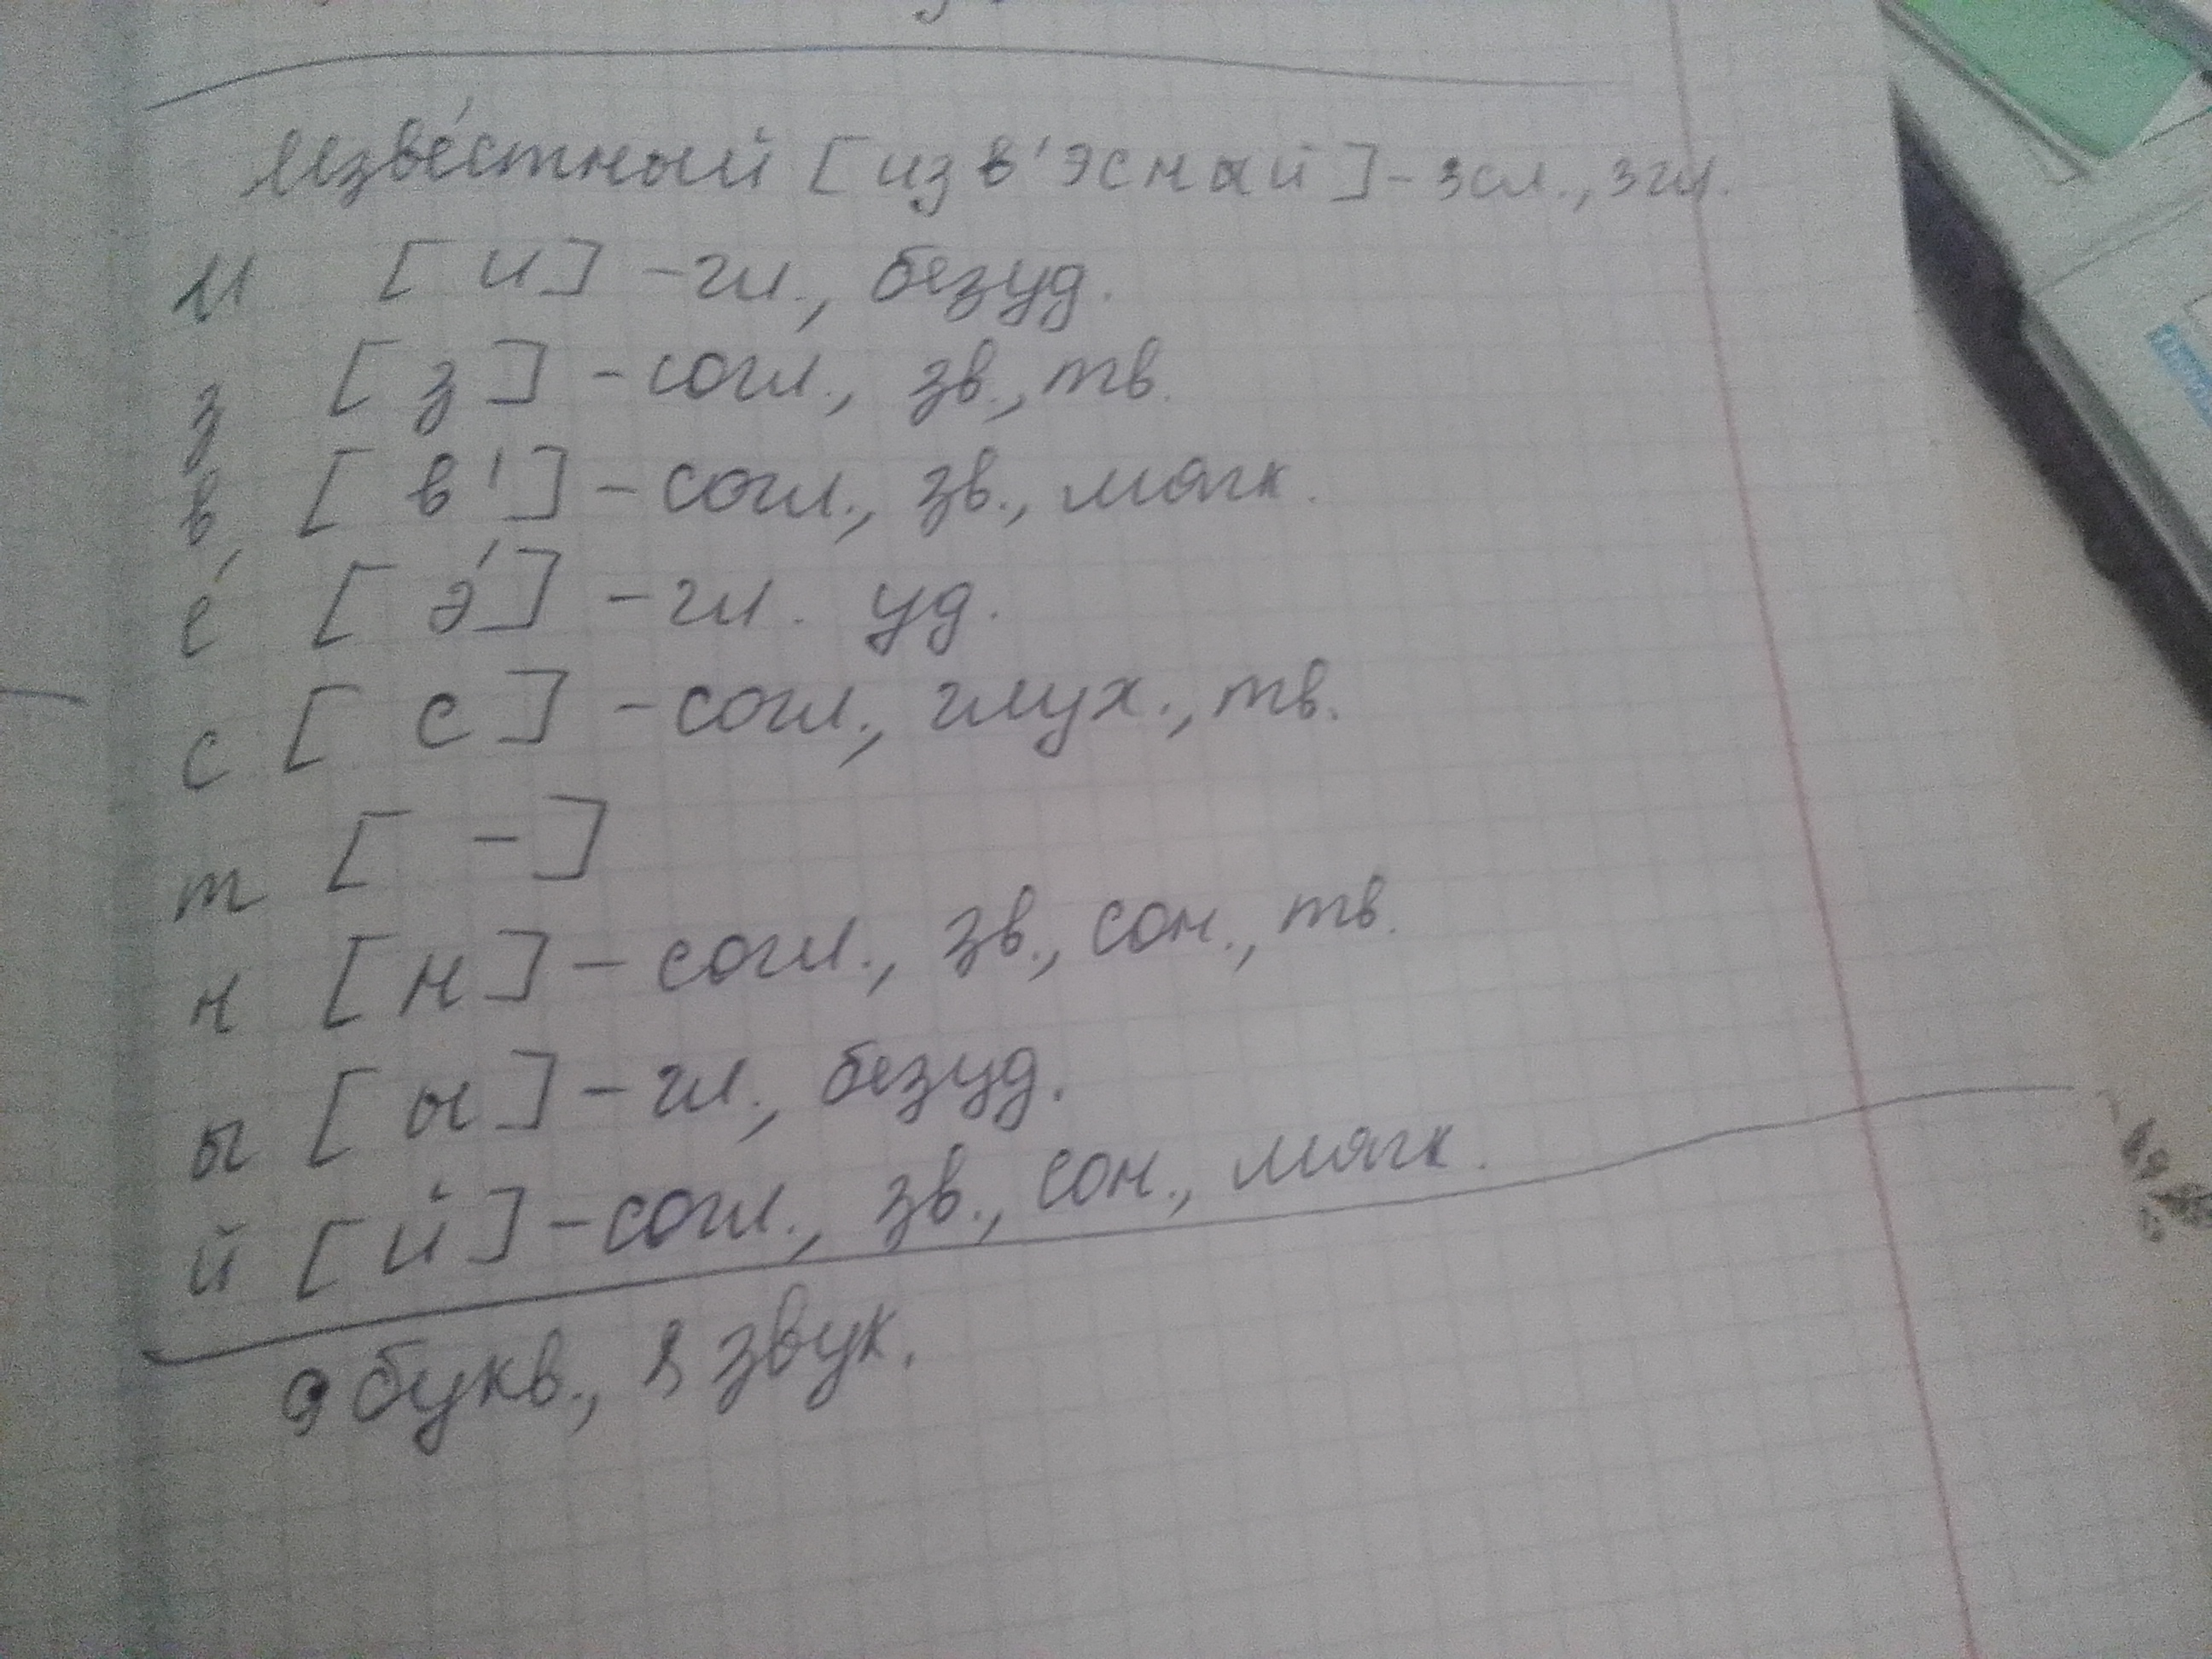 Изве́стный [изв'эснай] - 3сл., 3гл.
и [и] - гл., безуд.
з [з] - согл., зв., тв.
в [в'] - согл., зв., мягк.
е́ [э́] - гл. уд.
с [с] - согл., глух., тв.
т [-]
н [н] - согл., зв., сон., тв.
ы [ы] - гл., безуд.
й [й] - согл., зв., сон., мягк.
9 букв., 8 звук.